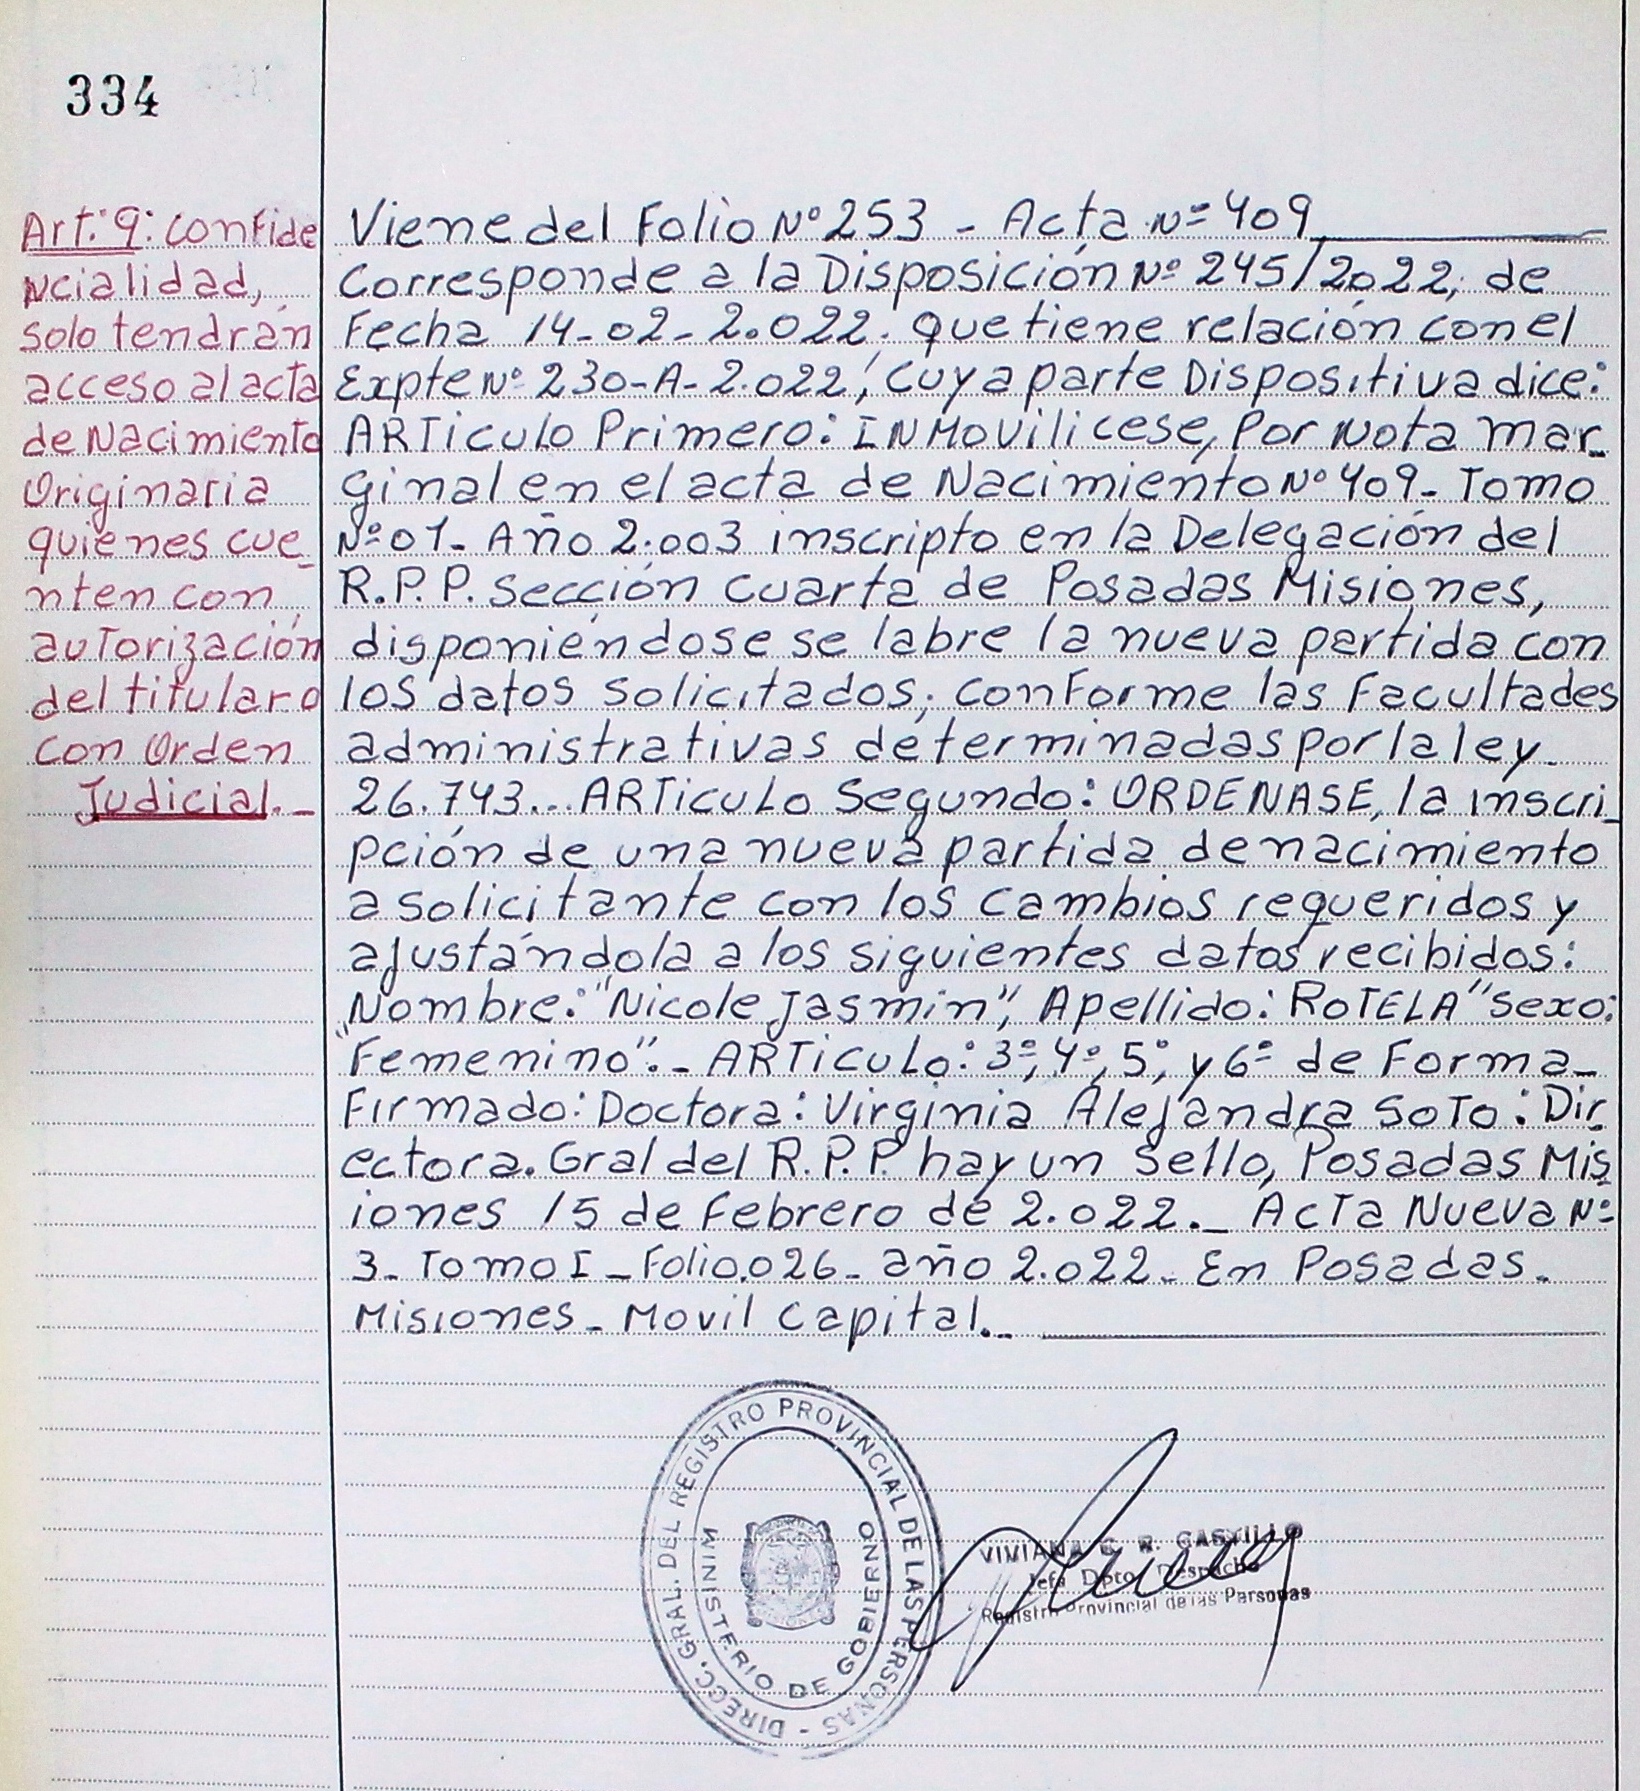 334
Art: 9: confide
ncialidad,
solo tendrán
acceso al acta
de Nacimiento
Originaria
quienes cue_
nten con
autorización
del titular o
con Orden
Judicial._
Viene del Folio Nº 253 - Acta Nº 409
Corresponde a la Disposición Nº 245/2022, de
Fecha 14-02-2.022. que tiene relación con el
Expte Nº 230-A-2.022, cuya parte Dispositiva dice:
ARTiculo Primero: INMOVilicese, Por Nota mar_
ginal en el acta de Nacimiento Nº 409- Tomo
Nº 01- Año 2.003 inscripto en la Delegación del
R.P.P. sección cuarta de Posadas Misiones,
disponiéndose se labre la nueva partida con
los datos solicitados, conforme las Facultades
administrativas determinadas por la ley-
26.743... ARTiculo Segundo: ORDENASE, la inscri_
pción de una nueva partida de nacimiento
a solicitante con los cambios requeridos y
ajustándola a los siguientes datos recibidos:
Nombre: "Nicole Jasmin", Apellido: ROTELA" Sexo:
"Femenino".- ARTiculo: 3º, 4º, 5º, y 6º de Forma_
Firmado: Doctora: Virginia Alejandra SOTO: Dir_
ectora. Gral del R.P.P. hay un sello, Posadas Mis
iones 15 de Febrero de 2.022._ ACTA Nueva Nº
3- Tomo I - Folio.026- año 2.022- En Posadas.
Misiones- Movil Capital._
DIRECC. GRAL. DEL REGISTRO PROVINCIAL DE LAS PERSONAS -
MINISTERIO DE GOBIERNO
VIVIANA G. R. CASTILLO
Jefa Dpto. Despacho
Registro Provincial de las Personas